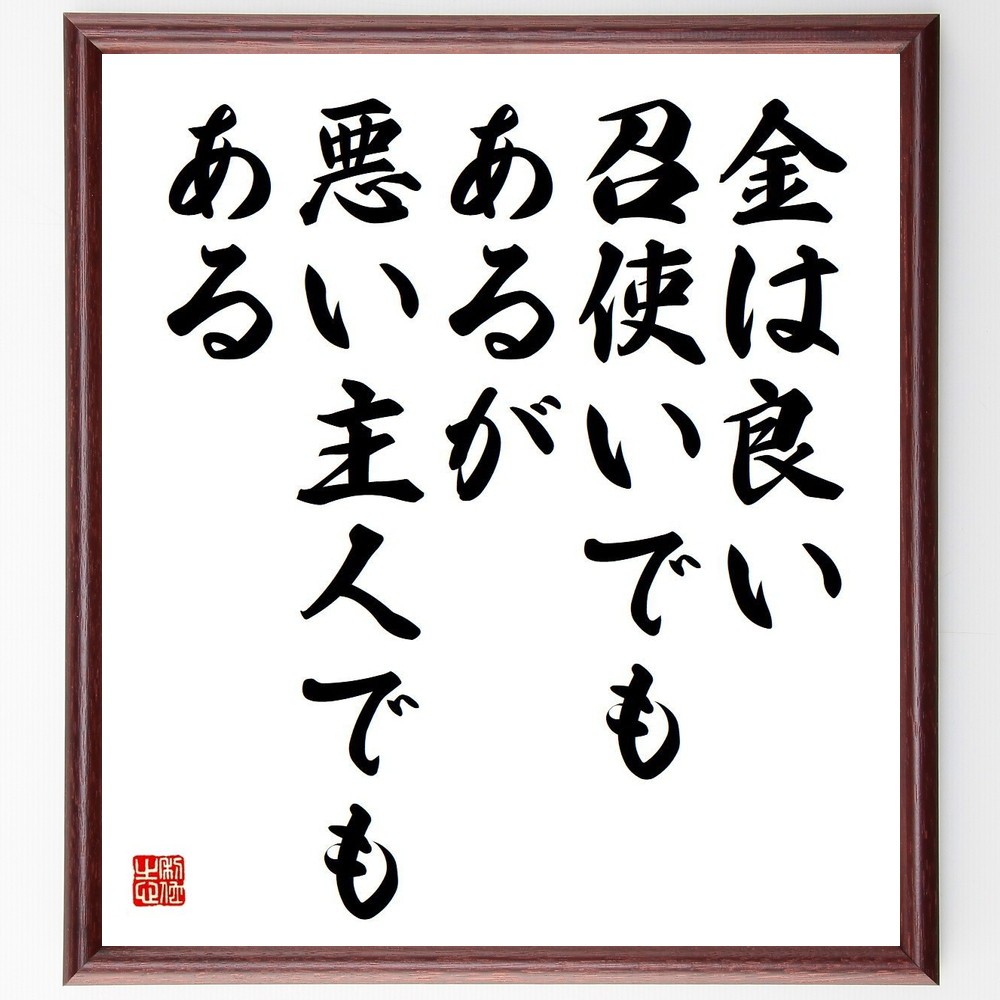 金は良い
召使いでも
あるが
悪い主人でも
ある